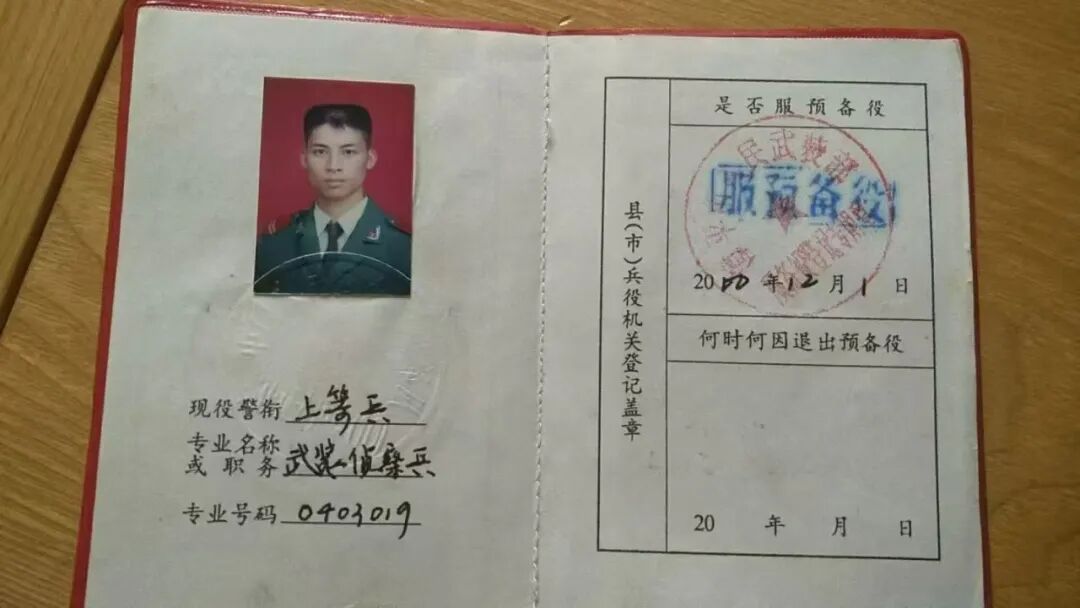 现役警衔 上等兵
专业名称
或职务 武装侦察兵
专业号码 0403019
县(市)兵役机关登记盖章
是否服预备役
民武装部
服预备役
2000年12月1日
何时何因退出预备役
20 年 月 日